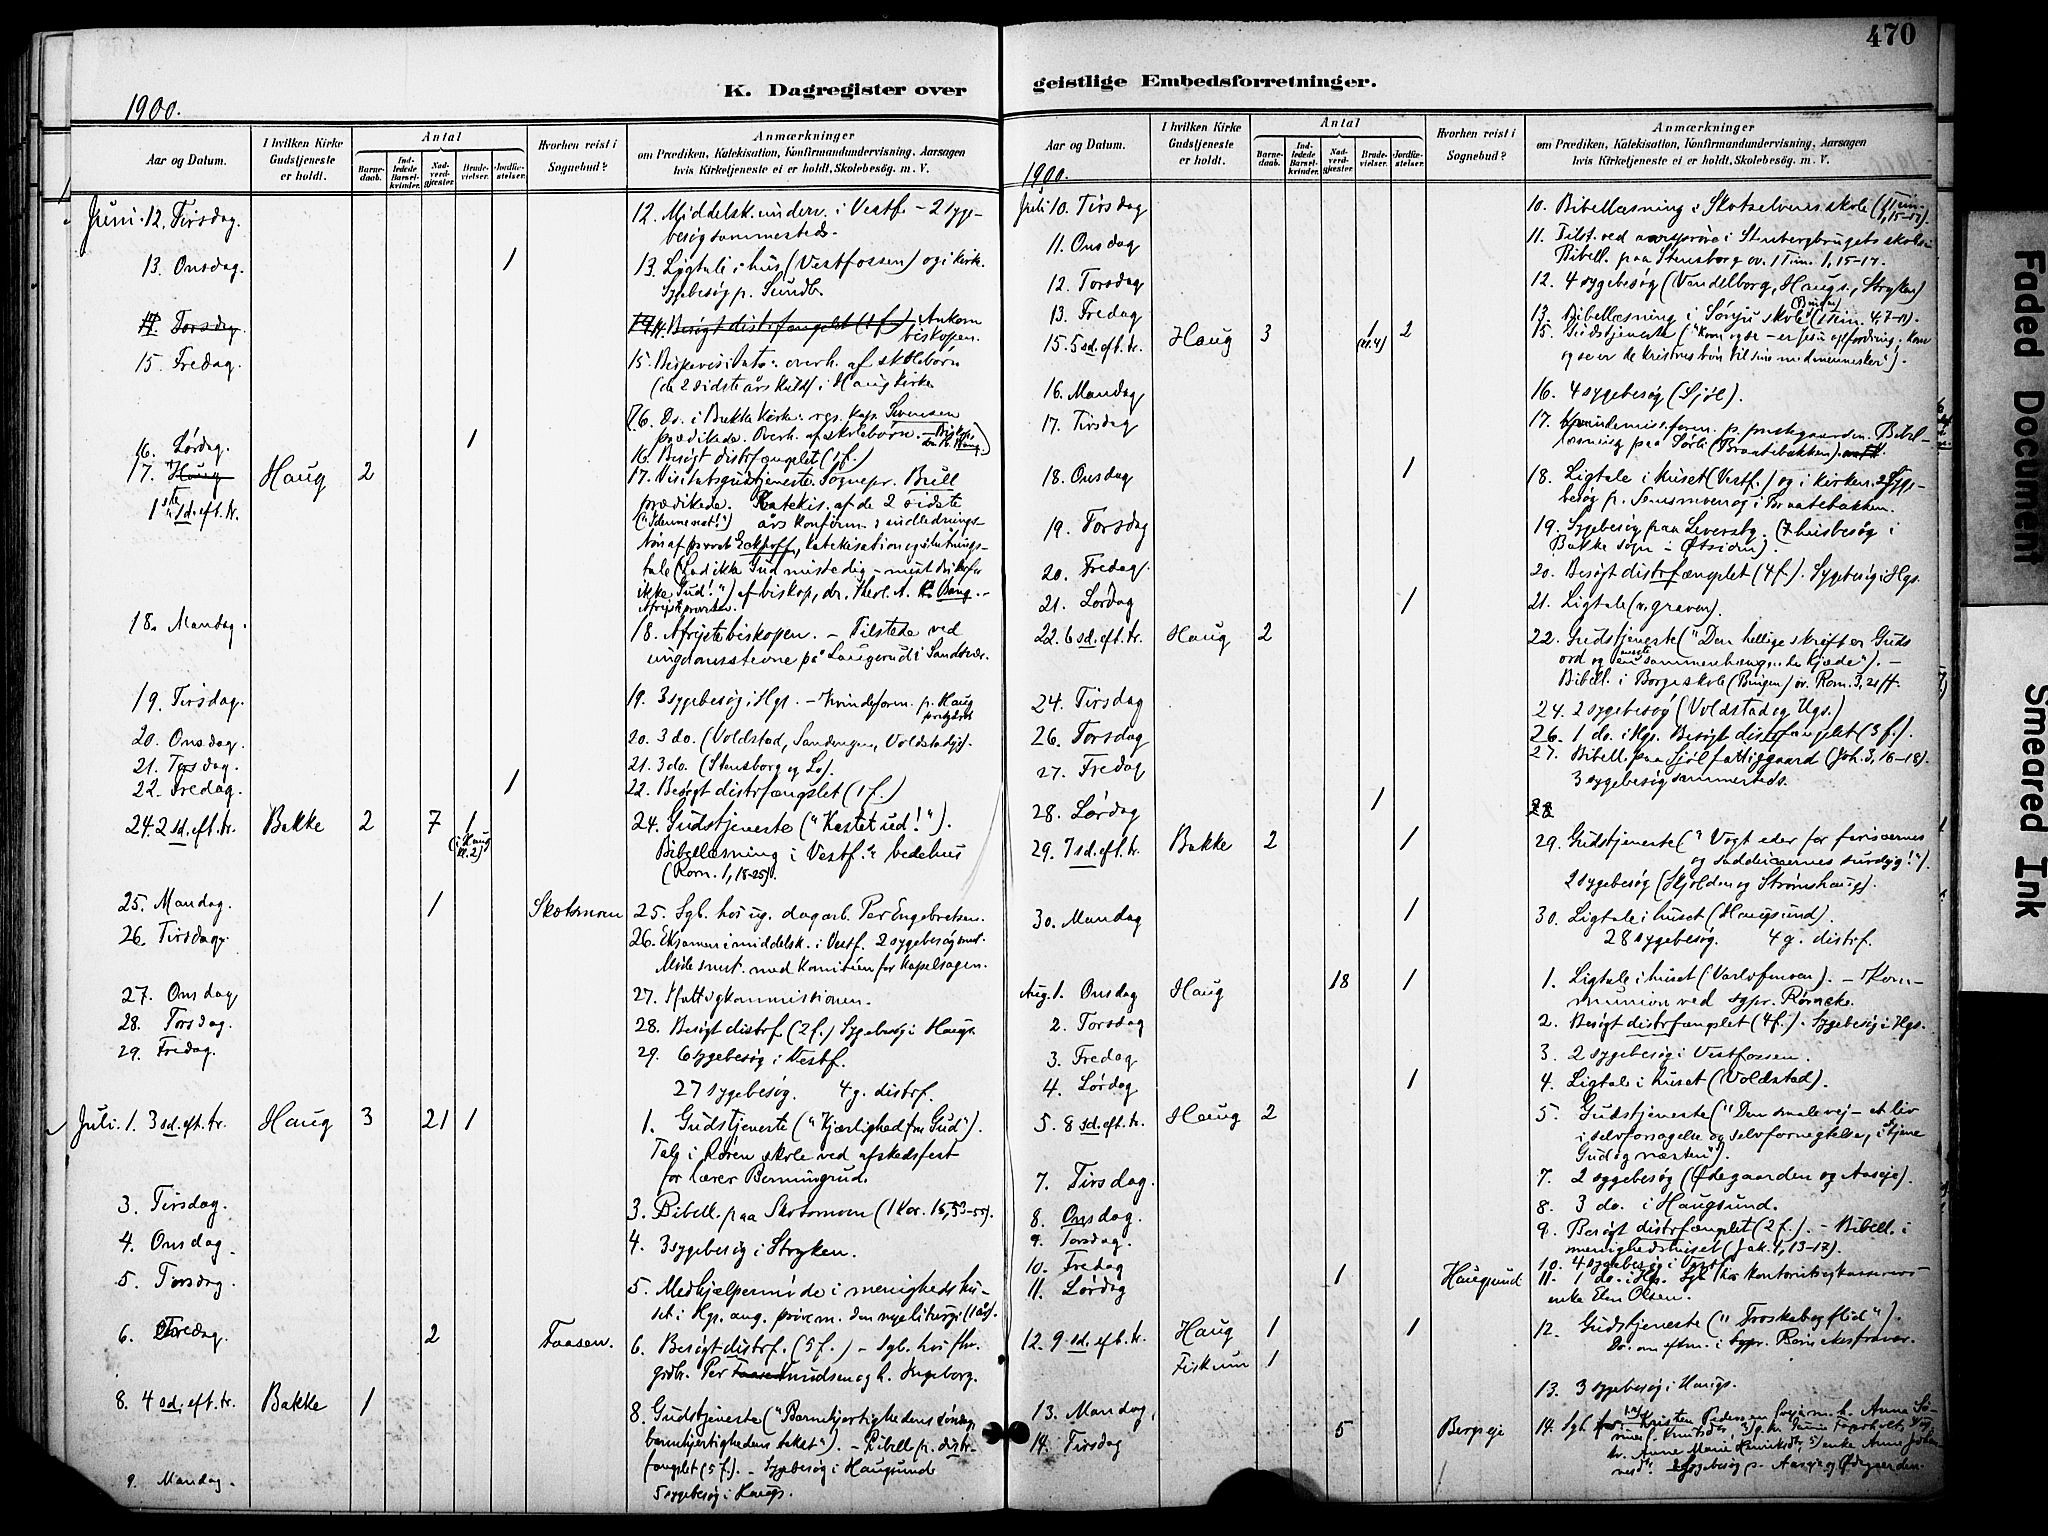 470
K. Dagregister over
geistlige Embedsforretninger.
1900.
Aar og Datum.
I hvilken Kirke Gudstjeneste er holdt.
Antal
Barnedaab.
Indledede Barselkvinder.
Nadverdgjæster
Brudevielser.
Jordfæstelser.
Hvorhen reist i Sognebud?
Anmærkninger
om Prædiken, Katekisation, Konfirmandundervisning, Aarsagen
hvis Kirketjeneste ei er holdt, Skolebesög. m. V.
Juni 12. Tirsdag. 12. Middelsk. underv. i Vestf. – 2 syge-
besøg sammesteds.
13. Onsdag. 1 13. Ligtale i hus (Vestfossen) og i kirk.
Sygebesøg p. Sundb.
14 Torsdag 14. Besøgt distrfængslet (1 f.) Ankom
biskopen.
15. Fredag. 15. Bispevisitats: overh. af skolebørn
(de 2 sidste års kuld) i Haug kirke
16. Do. i Bakke kirke: res. kap. Svensen
prædikede. Overh. af skolebørn.
16. Lørdag. 1 16. Besøgt distrfængslet (1 f.)
17. Haug Haug 2 17. Visitatsgudstjeneste. Sognepr. Brill
1ste sd. eft. tr. prædikede. Katekis. af de 2 sidste
års konfirm.: indlednings-
bøn af provst Eckhoff, katekisation og slutnings-
tale (Lad ikke Gud miste dig – mist du
ikke Gud!") af biskop, dr. theol. A. Chr. Bang.
18. Mandag. 18. Afrejste biskopen. – Tilstede ved
ungdomsstevne på Laugerud i Sandsvær.
19. Tirsdag. 19. 3 sygebesøg i Hgs. – Kvindeform. p. Haug
prestgård
20. Onsdag. 20. 3 do. (Voldstad, Sandengen, Voldstadje).
21. Torsdag. 21. 3 do. (Stensborg og Lo).
22. Fredag. 1 22. Besøgt distrfængslet (1 f.)
24. 2 sd. eft. tr. Bakke 2 7 1 24. Gudstjeneste ("Kastet ud!").
(i Haug kl. 2) Bibellæsning i Vestf.s bedehus
(Rom. 1, 18-25).
25. Mandag. 1 Skotsmoen 25. Sgb. hos ug. dagarb. Per Engebretsen.
26. Tirsdag. 26. Eksamen i middelsk. i Vestf. 2 sygebesøg smst.
Møde smst. med komiteen for kapelsagen.
27. Onsdag 27. Fattigkommissionen.
28. Torsdag. 28. Besøgt distrf. (2 f.) Sygebesøg i Haugs.
29. Fredag. 29. 6 sygebesøg i Vestf.
27 sygebesøg. 4 g. distrf.
Juli. 1. 3 sd. eft. tr. Haug 3 21 1 1. Gudstjeneste ("Kjærlighed fra Gud").
Tale i Røren skole ved afskedsfest
for lærer Berningrud.
3. Tirsdag. 3. Bibell. paa Skotsmoen (1 Kor. 15, 53-55).
4. Onsdag. 4. 3 sygebesøg i Stryken.
5. Torsdag. 5. Medhjælpermøde i menighedshu-
set i Hgs. ang. prøve m. den nye liturgi (1 år).
6. Fredag. 2 Faasen. 6. Besøgt distrf. (5 f.) – Sgb. hos fhv.
grdbr. Per Knudsen og h. Ingeborg.
8. 4 sd. eft. tr. Bakke 1 8. Gudstjeneste ("Barmhjertighedens søndag,
barmhjertighedens tekst"). – Bibell. p. distr-
fængslet (5 f.). – Sygebesøg i Haugsund.
9. Mandag. 5 sygebesøg i Haugs.
1900.
Aar og Datum.
I hvilken Kirke Gudstjeneste er holdt.
Antal
Barnedaab.
Indledede Barselkvinder.
Nadverdgjæster
Brudevielser.
Jordfæstelser.
Hvorhen reist i Sognebud?
Anmærkninger
om Prædiken, Katekisation, Konfirmandundervisning, Aarsagen
hvis Kirketjeneste ei er holdt, Skolebesög. m. V.
Juli 10. Tirsdag 10. Bibellæsning i Skotselvens skole (1 Tim. 1, 15-17).
11. Onsdag 11. Tilst. ved aarsprøve i Stenbergbrugets skole.
Bibell. paa Stensborg ov. 1 Tim. 1, 15-17.
12. Torsdag 12. 4 sygebesøg (Vendelborg, Haugs., Stryken)
13. Fredag 13. Bibellæsning i Sønju skole (1 Tim. 4, 7-11).
15. 5 sd. eft. tr. Haug 3 1 2 15. Gudstjeneste ("Kom og se – er Jesu opfordring; kom
og se er de kristnes bøn til sine medmennesker").
16. Mandag 16. 4 sygebesøg (Sjøl).
17. Tirsdag 17. Kvindemissform. p. prestegaarden. Bibel-
læsning paa Sørli (Braatebakken).
18. Onsdag 1 18. Ligtale i huset (Vestf.) og i kirken. 2 syge-
besøg p. Stensmoen og i Braatebakken.
19. Torsdag 19. Sygebesøg paa Leversby. (7 husbesøg i
Bakke sogn – Østsiden).
20. Fredag. 20. Besøgt distrfængslet (4 f.). Sygebesøg i Hgs.
21. Lørdag 1 21. Ligtale (v. graven).
22. 6 sd. eft. tr. Haug 2 22. Gudstjeneste ("Den hellige skrift er Guds
ord og en sammenhængende kjæde"). –
Bibell. i Borge skole (Bingen) ov. Rom. 3, 21 ff.
24. Tirsdag 24. 2 sygebesøg (Voldstad og Hgs.)
26. Torsdag 26. 1 do. i Hgs. Besøgt distrfængslet (3 f.).
27. Fredag 27. Bibell. paa Sjøl fattiggaard (Joh. 3, 16-18).
3 sygebesøg sammesteds.
28. Lørdag 1 28
29. 7 sd. eft. tr. Bakke 2 1 29. Gudstjeneste ("Vogt eder for farisæernes
og sadducæernes surdejg!").
2 sygebesøg (Skjolden og Strømshaug).
30. Mandag 1 30. Ligtale i huset (Haugsund).
28 sygebesøg. 4 g. distrf.
Aug. 1. Onsdag Haug 18 1 1. Ligtale i huset (Varlofmoen). – Kom-
munion ved sgpr. Rømcke.
2. Torsdag 2. Besøgt distrfængslet (4 f.). Sygebesøg i Hgs.
3. Fredag 3. 2 sygebesøg i Vestfossen.
4. Lørdag 1 4. Ligtale i huset (Voldstad).
5. 8 sd. eft. tr. Haug 2 5. Gudstjeneste ("Den smale vej – et liv
i selvforsagelse og selvfornegtelse, i at tjene
Gud og næsten").
7. Tirsdag. 7. 2 sygebesøg (Ødegaarden og Aaseje).
8. Onsdag. 8. 3 do. i Haugsund.
9. Torsdag. 9. Besøgt distrfængslet (2 f.). – Bibell. i
menighedshuset (Jak. 4, 13-17).
10. Fredag 10. 4 sygebesøg i Vestf.
11. Lørdag 1 Haugsund 11. 1 do. i Hgs. Sgb. hos
enke Elen Olsen.
12. 9 sd. eft. tr. Haug 1 1 12. Gudstjeneste ("Troskab og flid").
Fiskum 1 Do. om eftm. i sgpr. Rømckes fravær.
13. Mandag. 13. 3 sygebesøg i Haugs.
14. Tirsdag 5 Bergseje 14. Sgb. Kristen Pedersen
kr. Anne Marie Henriksdr. enke Anne
Sygebesøg p. Aaseje og Ødegaarden.